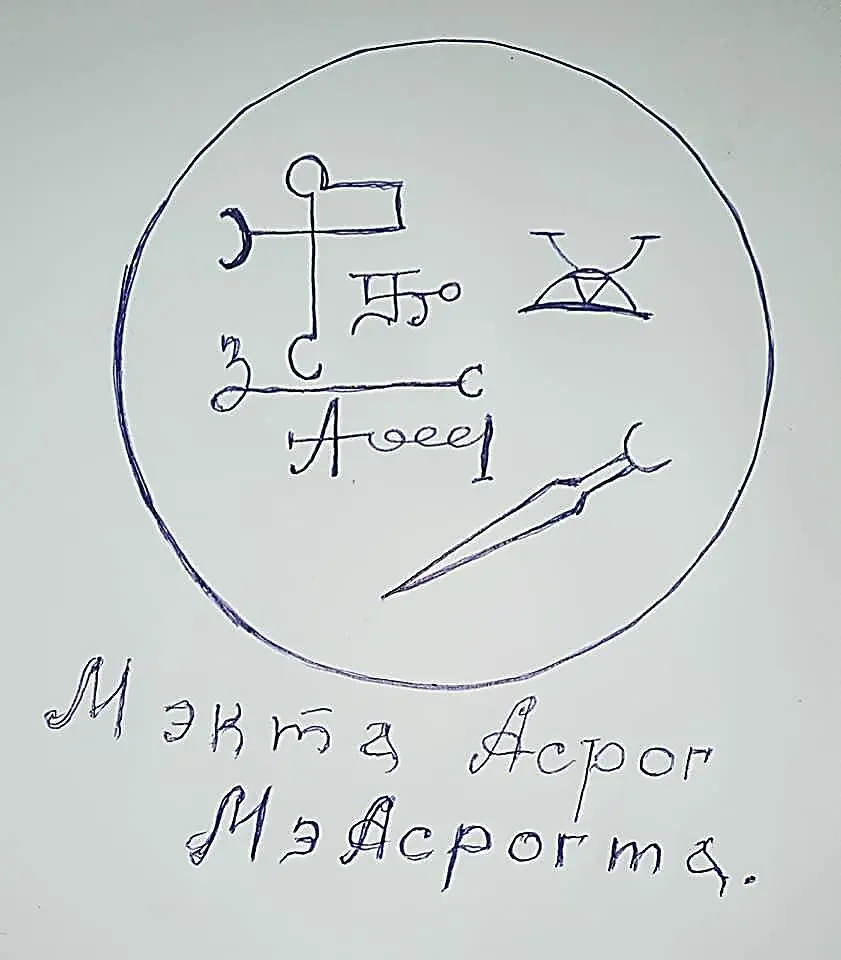 Мэкта Асрог
МэАсрогта.